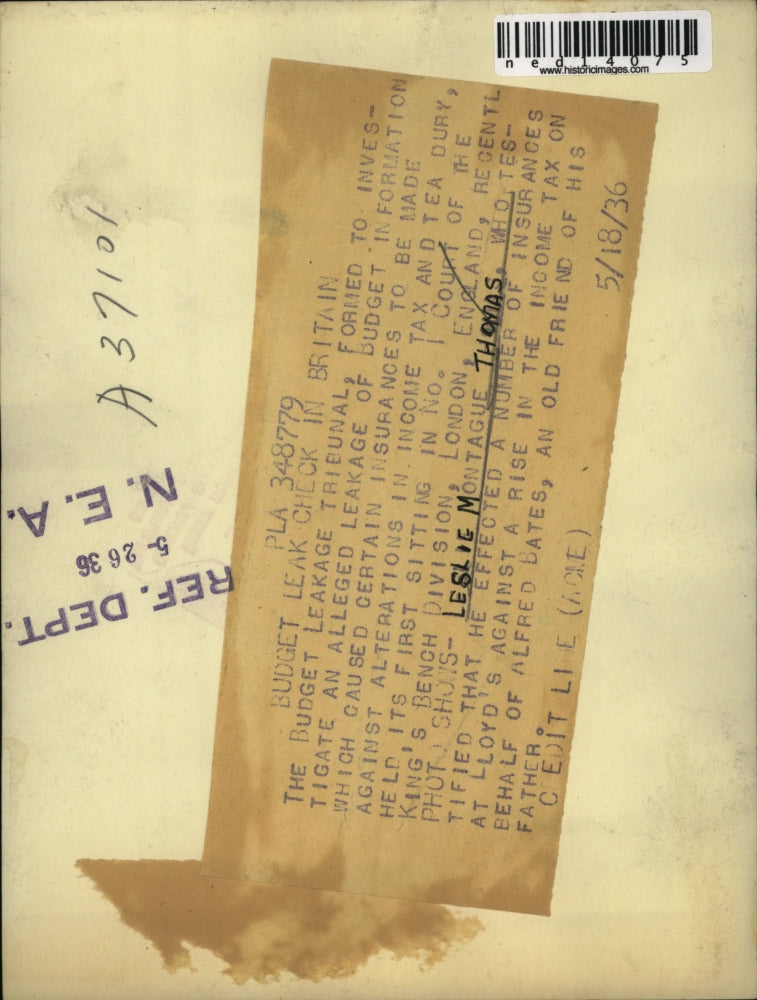 ned14075
www.historicimages.com
A37101
N.E.A.
5-26 36
REF. DEPT.
PLA 348779
BUDGET LEAK CHECK IN BRITAIN
THE BUDGET LEAKAGE TRIBUNAL, FORMED TO INVES-
TIGATE AN ALLEGED LEAKAGE OF BUDGET INFORMATION
WHICH CAUSED CERTAIN INSURANCES TO BE MADE
AGAINST ALTERATIONS IN INCOME TAX AND TEA DURY,
HELD ITS FIRST SITTING IN NO. 1 COURT OF THE
KING'S BENCH DIVISION, LONDON, ENGLAND, RECENTL
PHOTO SHOWS- LESLIE MONTAGUE THOMAS, WHO TES-
TIFIED THAT HE EFFECTED A NUMBER OF INSURANCES
AT LLOYD'S AGAINST A RISE IN THE INCOME TAX ON
BEHALF OF ALFRED BATES, AN OLD FRIEND OF HIS
FATHER.
CREDIT LINE (ACME)
5/18/36